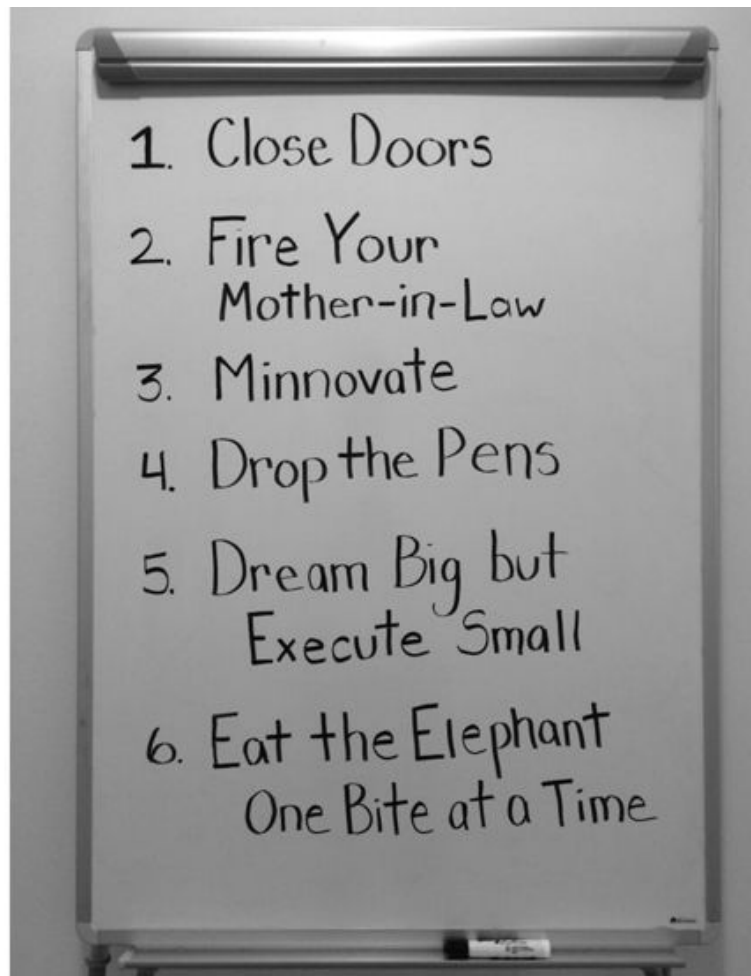 1. Close Doors
2. Fire Your
Mother-in-Law
3. Minnovate
4. Drop the Pens
5. Dream Big but
Execute Small
6. Eat the Elephant
One Bite at a Time